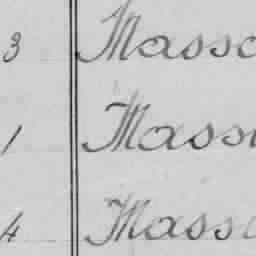 3 Masso
1 Mass
4 Mass